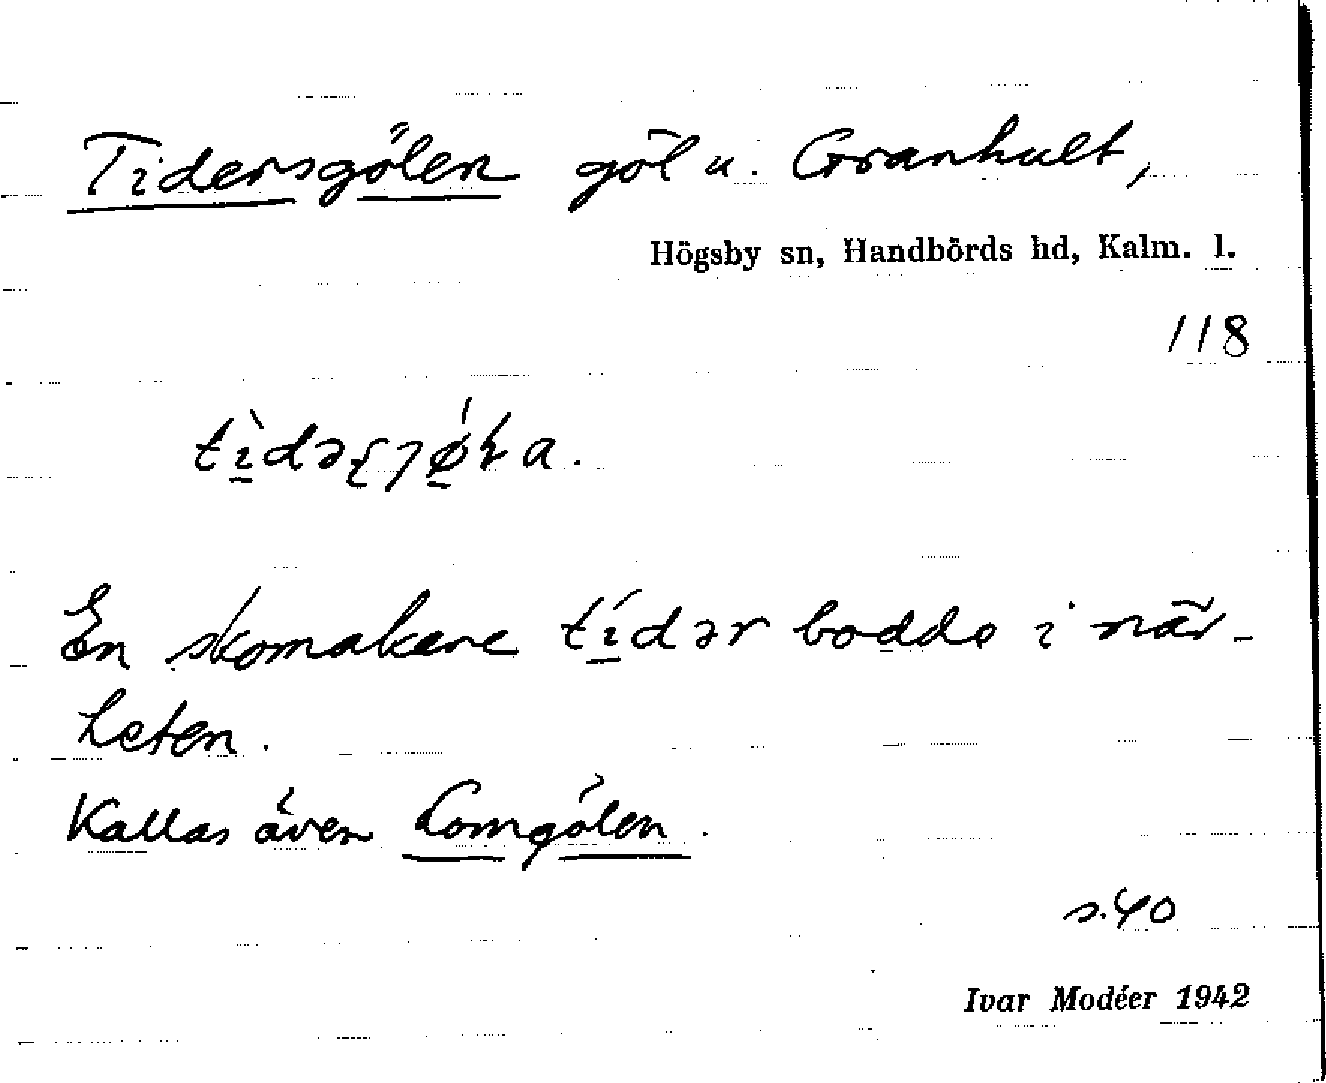 Tidersgölen göl u. Granhult,
Högsby sn, Handbörds hd, Kalm. l.
118
En skomakare tídər bodde i när-
heten.
Kallas även Lomgölen.
s. 40
Ivar Modéer 1942